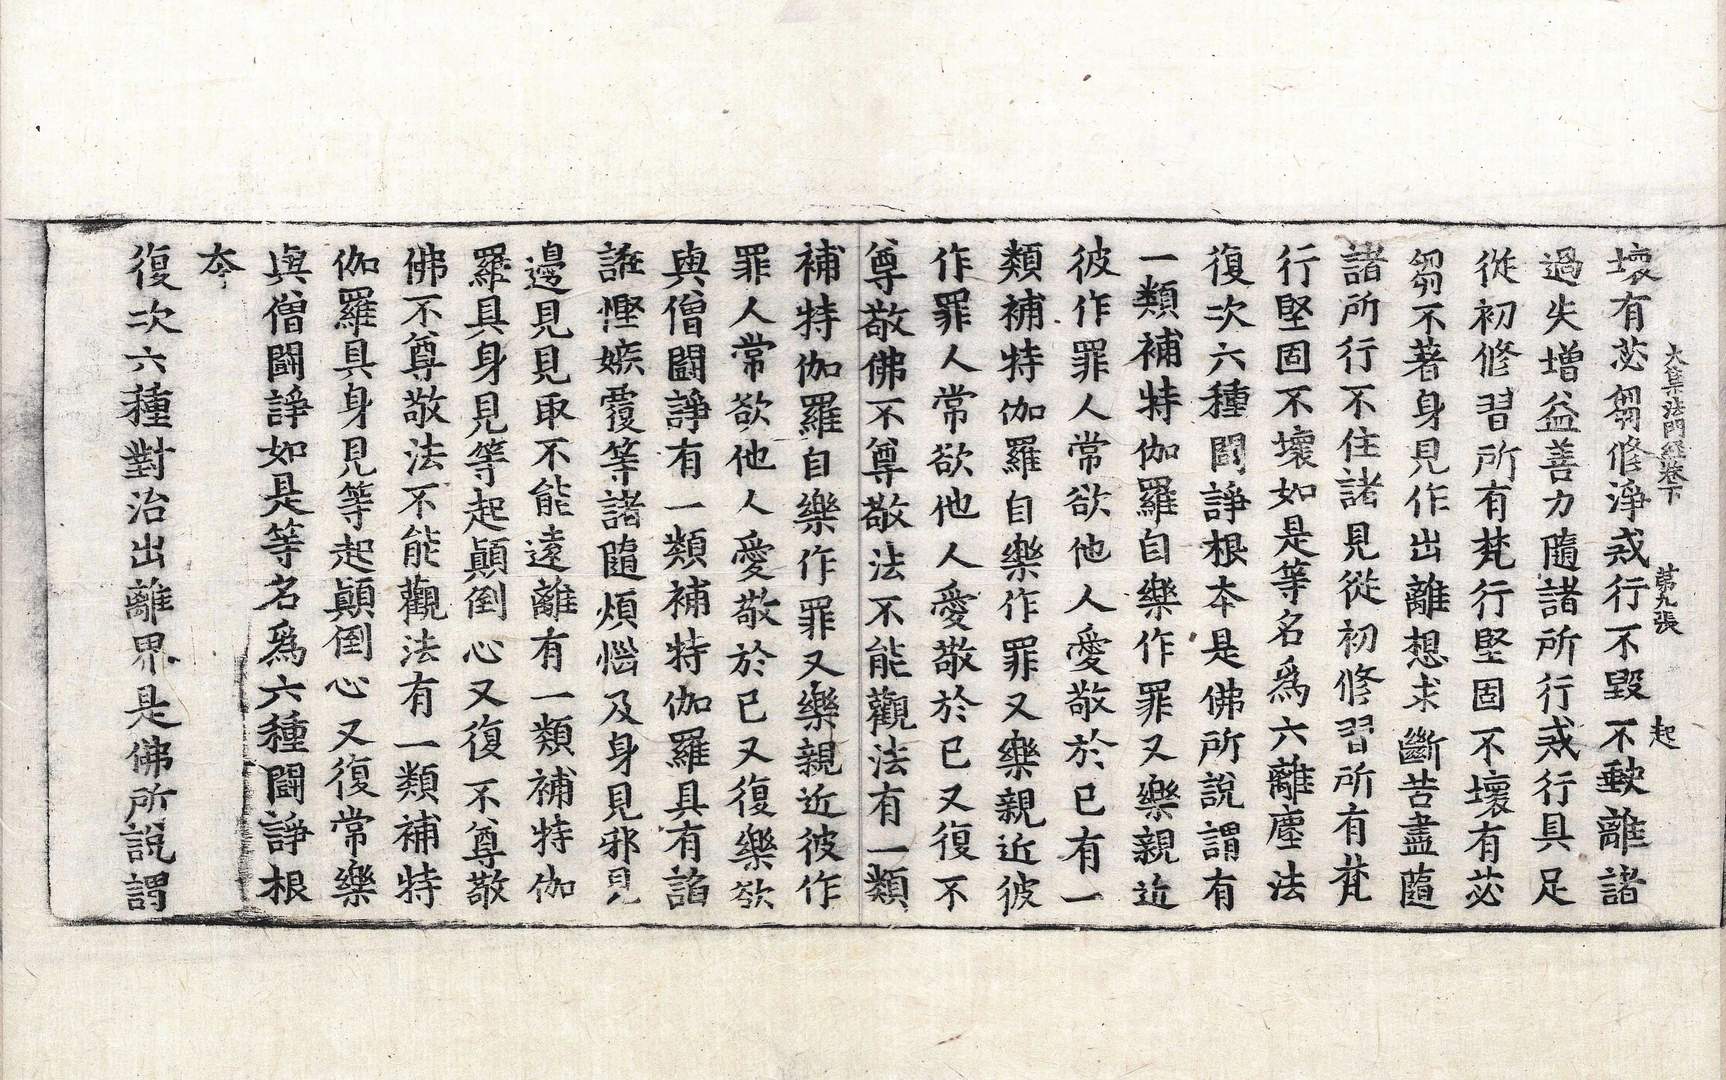 大集法門經卷下 第九張 起
壞有苾芻修淨戒行不毀不缺離諸
過失增益善力隨諸所行戒行具足
從初修習所有梵行堅固不壞有苾
芻不著身見作出離想求斷苦盡隨
諸所行不住諸見從初修習所有梵
行堅固不壞如是等名爲六離塵法
復次六種鬪諍根本是佛所說謂有
一類補特伽羅自樂作罪又樂親近
彼作罪人常欲他人愛敬於已有一
類補特伽羅自樂作罪又樂親近彼
作罪人常欲他人愛敬於已又復不
尊敬佛不尊敬法不能觀法有一類
補特伽羅自樂作罪又樂親近彼作
罪人常欲他人愛敬於已又復樂欲
與僧鬪諍有一類補特伽羅具有諂
誑慳嫉覆等諸隨煩惱及身見邪見
邊見見取不能遠離有一類補特伽
羅具身見等起顚倒心又復不尊敬
佛不尊敬法不能觀法有一類補特
伽羅具身見等起顚倒心又復常樂
與僧鬪諍如是等名爲六種鬪諍根
本
復次六種對治出離界是佛所說謂